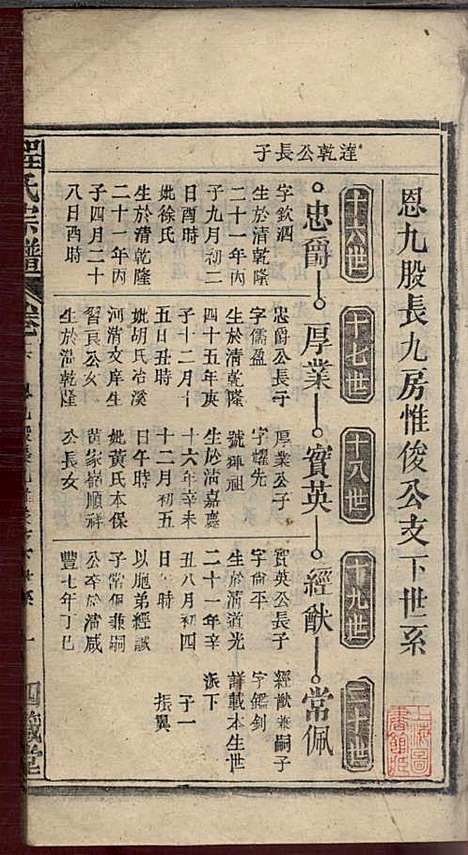 恩九股長九房惟俊公支下世系
十六世
十七世
十八世
十九世
二十世
達乾公長子
忠爵
厚業
賓英
經猷
常佩
字欽泗
生於清乾隆
二十一年丙
子九月初二
日酉時
妣徐氏
生於清乾隆
二十一年丙
子四月二十
八日酉時
忠爵公長子
字儒盈
生於清乾隆
四十五年庚
子十二月十
五日丑時
妣胡氏冶溪
河清文庠生
習良公女
生於清乾隆
厚業公子
字耀先
號輝祖
生於清嘉慶
十六年辛未
十二月初五
日午時
妣黃氏本保
黃家嶺順祥
公長女
賓英公長子
字尙平
生於清道光
二十一年辛
丑八月初四
日 時
以胞弟經誠
子常佩兼嗣
公卒於清咸
豐七年丁巳
經猷兼嗣子
字鑑釗
詳載本生世
派下
子一
振翼
氏宗譜
卷
四箴堂
上海圖
書館藏